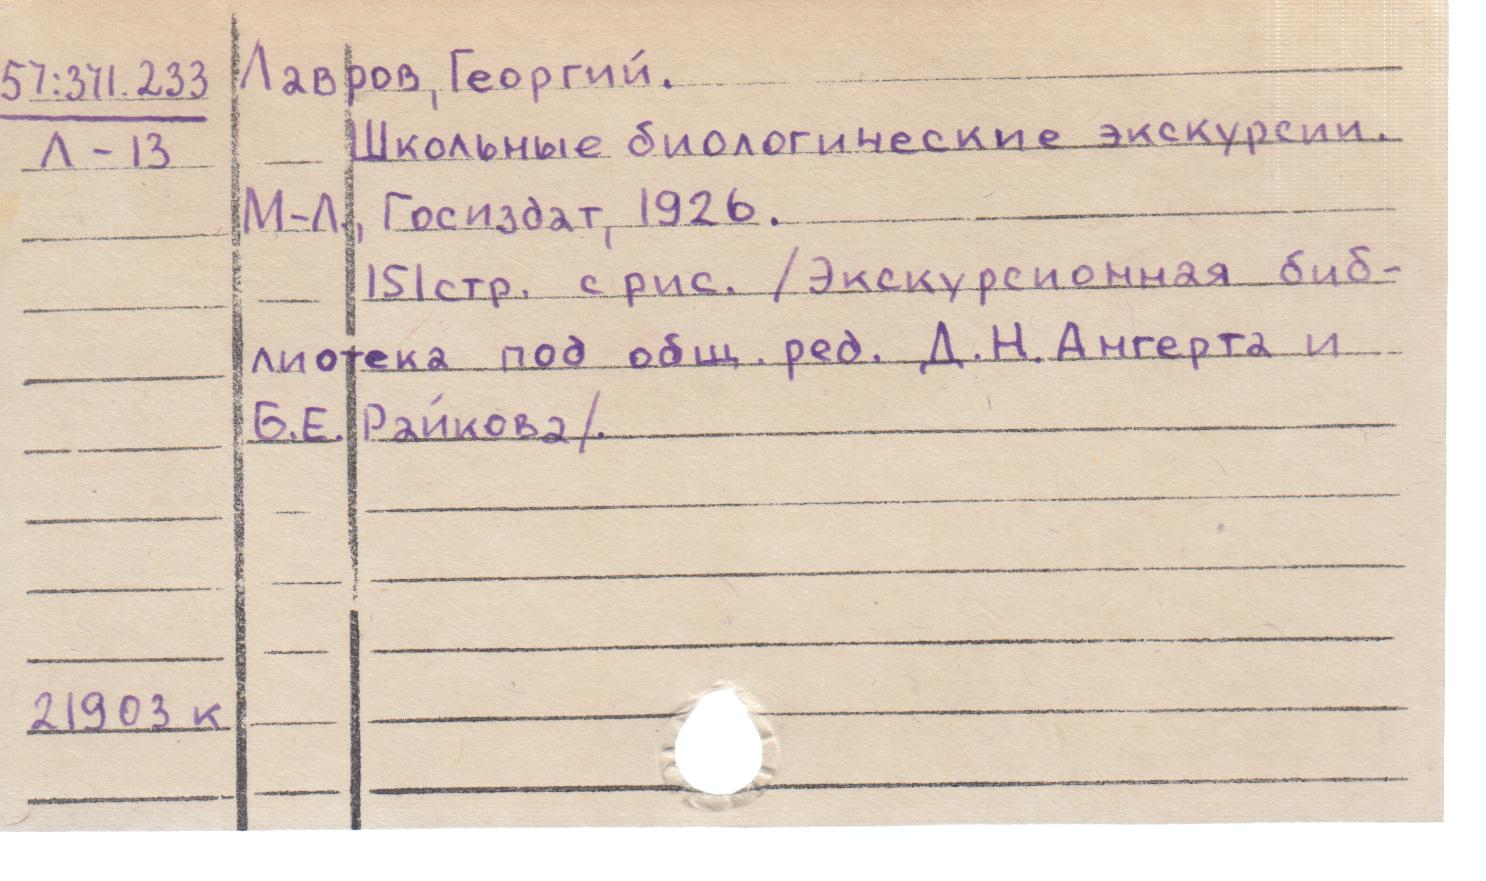 57:371.233 Лавров, Георгий.
Л - 13 Школьные биологические экскурсии.
М-Л., Госиздат, 1926.
151стр. с рис. /Экскурсионная биб-
лиотека под общ. ред. Д.Н.Ангерта и
Б.Е.Райкова/.
21903 к